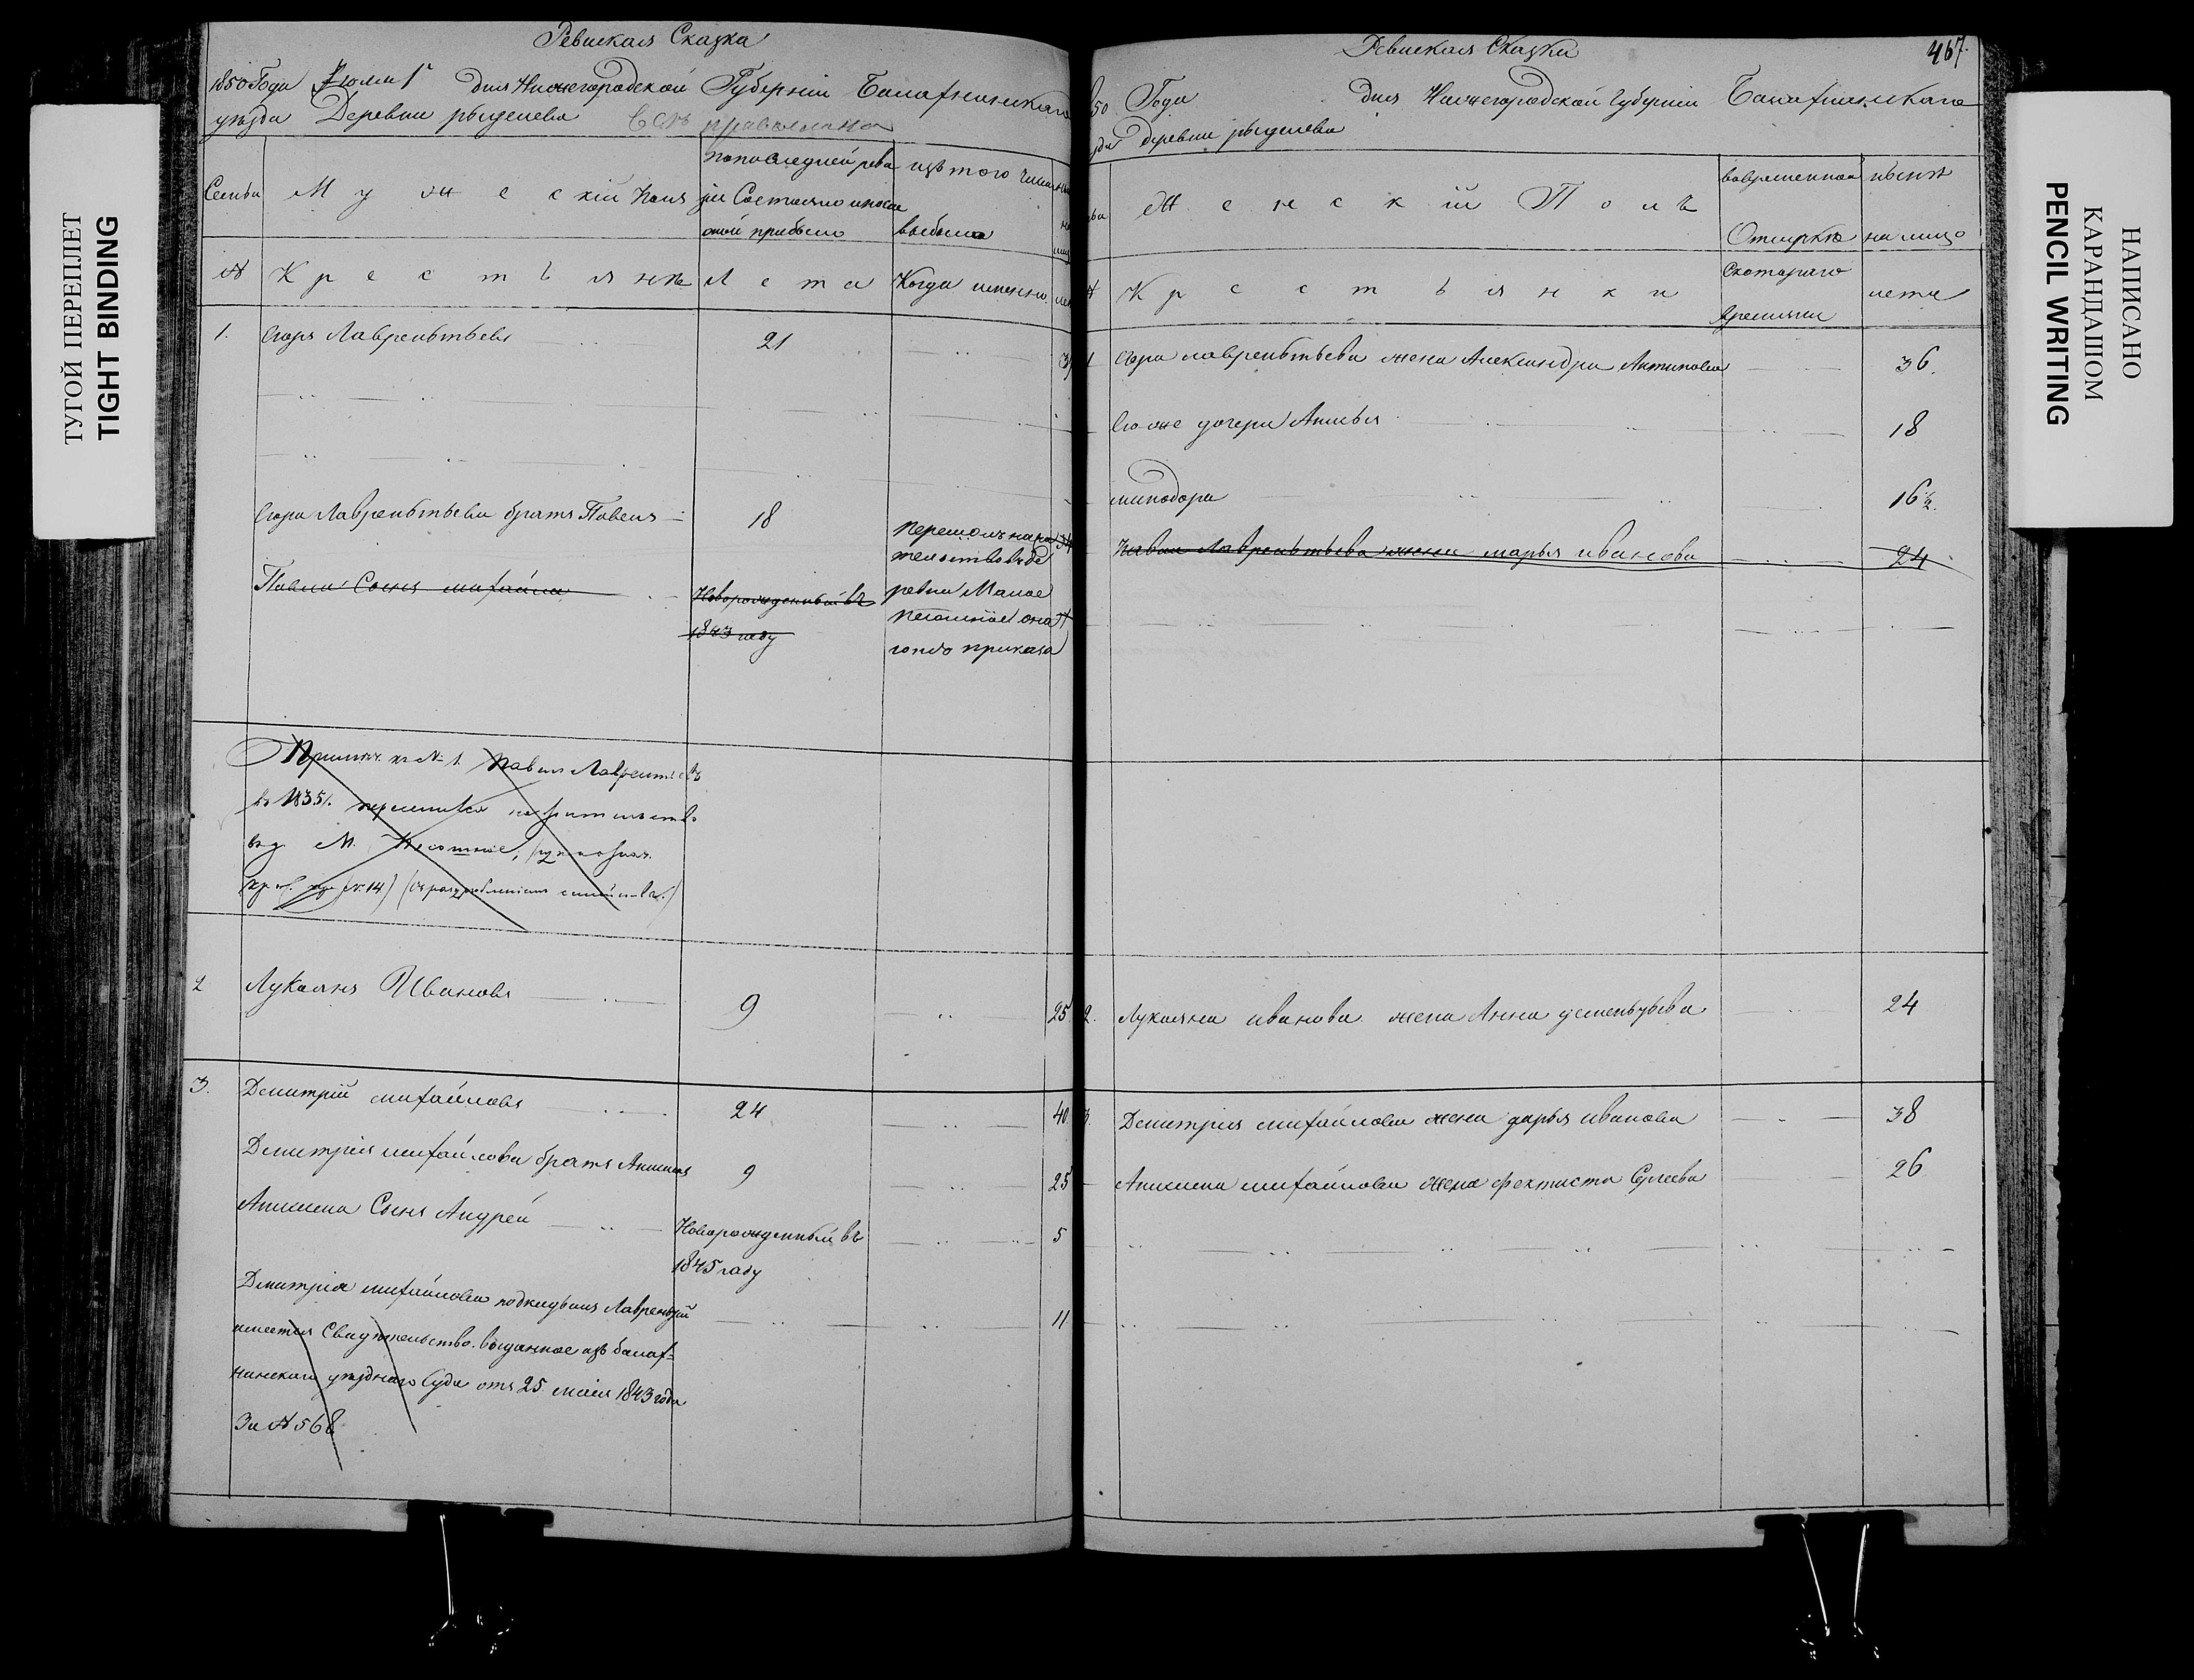 ТУГОЙ ПЕРЕПЛЕТ
TIGHT BINDING
Ревиская Сказка
1850 Года Июля 1 дня Нижегородской Губерніи Балахнинскаго
уѣзда Деревни рыделева
Семьи
Мужескій Полъ
по последней реви
зіи Состояло и после
оной прибыло
изъ того числа
выбыло
№
Крестьянѣ
Лета
Когда именно
1. Егоръ Лаврентьевъ 21
Егора Лаврентьева братъ Павелъ 18
перешолъ на жи
тельство въ де
ревни Малое
Песошное она
гоже приказа
Павла Сынъ михайла
Новорожденный въ
1843 году
Примѣч. къ № 1. Павелъ Лаврентьевъ
въ 1835 г.
въ д. М. Песошное,
(№ 14) (съ раздробленіемъ семейства)
2 Лукоянъ Ивановъ 9 25
3. Дмитрій михайловъ 24 40
Дмитрія михайлова братъ Анисимъ 9 25
Анисима Сынъ Андрей
Новорожденный въ
1845 году
5
Дмитрія михайлова подкидышъ Лаврентій 11
имеется Свидетельство выданное изъ балах-
нинскаго уѣзднаго Суда отъ 25 маія 1843 года
За № 568
Ревиская Сказка
467.
50 Года дня Нижегородской Губерніи Балахнинскаго
деревни рыделева
Женскій Полъ
во временной
Отлучкѣ
ныне
на лицо
№
Крестьянки
Скотораго
времяни
лета
1 Егора лаврентьева жена Александра Антипова 36.
Его же дочери Анисья 18
минодора 16 1/2.
Павла Лаврентьева жена марья иванова 24
2. Лукояна иванова жена Анна 24
3. Дмитрия михайлова жена дарья иванова 38
Анисима михайлова жена фектиста Сергеева 26
НАПИСАНО
КАРАНДАШОМ
PENCIL WRITING